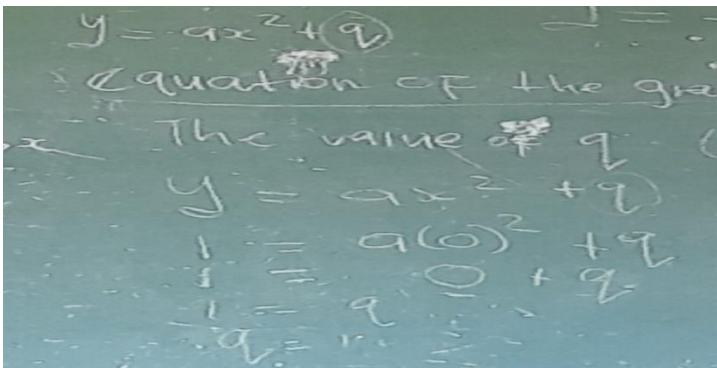 y = ax² + q
y =
Equation of the gra
x
The value of q (
y = ax² + q
1 = a(0)² + q
1 = 0 + q
1 = q
q = 1